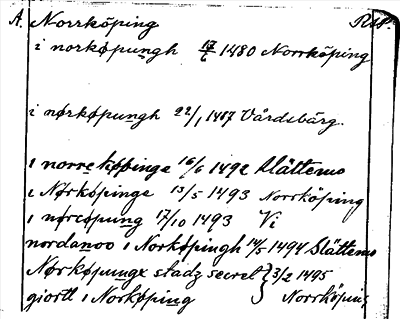 A. Norrköping RAp.
i norkøpungh 17/6 1480 Norrköping
i nørkøpungh 22/1 1487 Vårdsbärg.
i norrekøpinge 16/6 1492 Slättemo
i Nørkøpinge 13/5 1493 Norrköping
i nørcøpung 17/10 1493 Vi
nordanoo i Norkøpingh 14/5 1494 Slättemo
Nørkøpungx stadz secret } 3/2 1495
giortt i Norkøping Norrköping